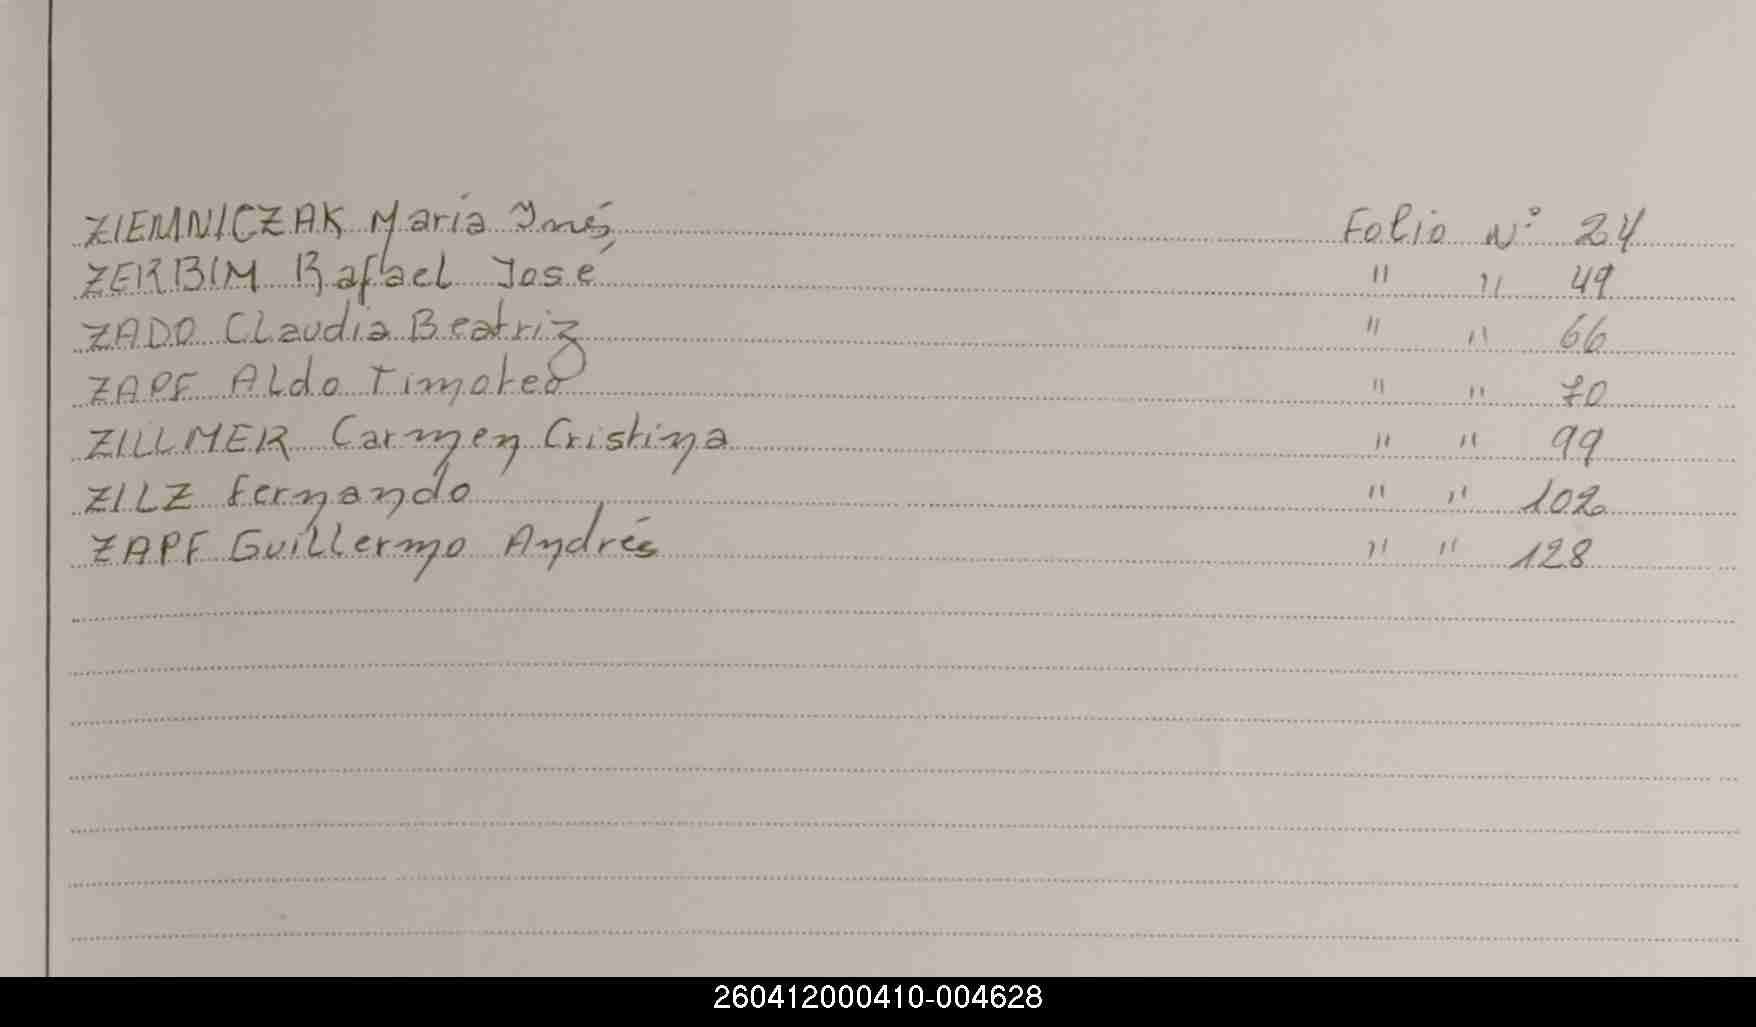 ZIEMNICZAK Maria Inés, Folio N° 24
ZERBIM Rafael José " " 49
ZADO Claudia Beatriz " " 66
ZAPF Aldo Timoteo " " 70
ZILLMER Carmen Cristina " " 99
ZILZ Fernando " " 102
ZAPF Guillermo Andrés " " 128
260412000410-004628